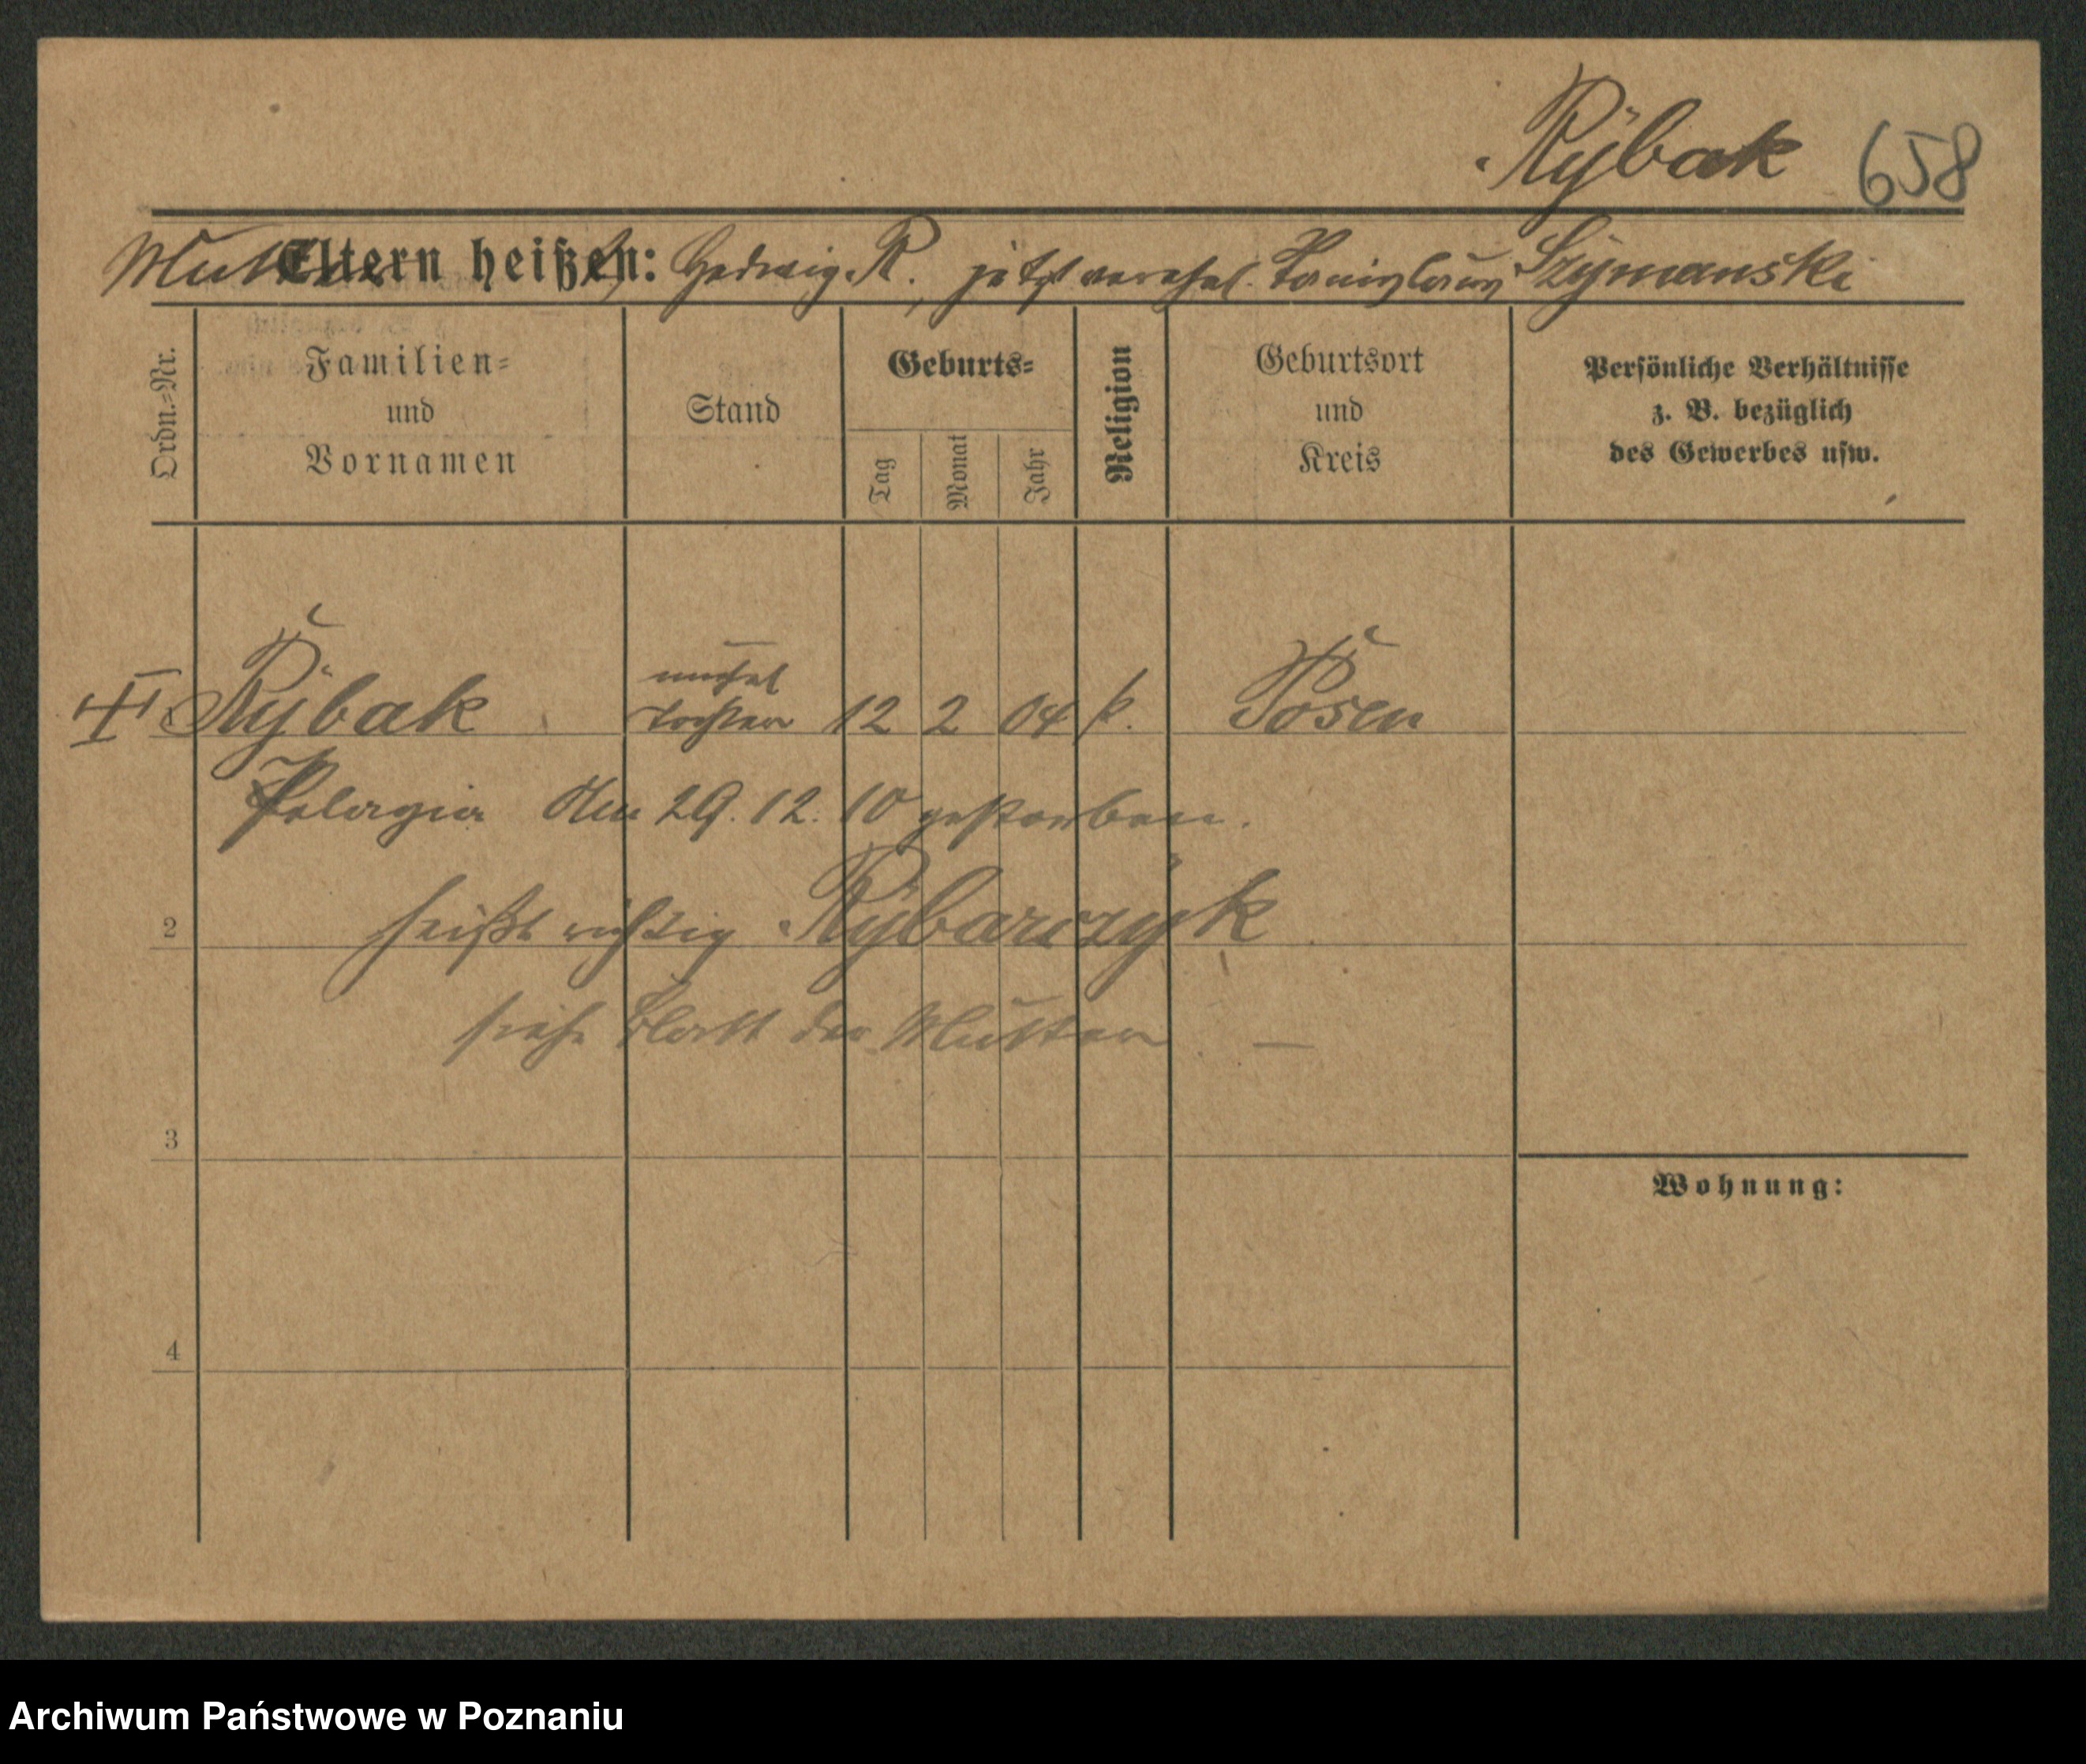 Rÿbak 658
Mutter Eltern heißen: Hedwig R., jetzt verehel. Szÿmanski
Ordn.=Nr.
Familien=
und
Vornamen
Stand
Geburts=
Tag
Monat
Jahr
Religion
Geburtsort
und
Kreis
Persönliche Verhältnisse
z. B. bezüglich
des Gewerbes usw.
unehel
Rÿbak Tochter 12 2 04 k. Posen
Pelagia Am 29. 12. 10 gestorben.
2 heißt richtig Rÿbarczÿk
siehe Blatt der Mutter –
3
Wohnung:
4
Archiwum Państwowe w Poznaniu